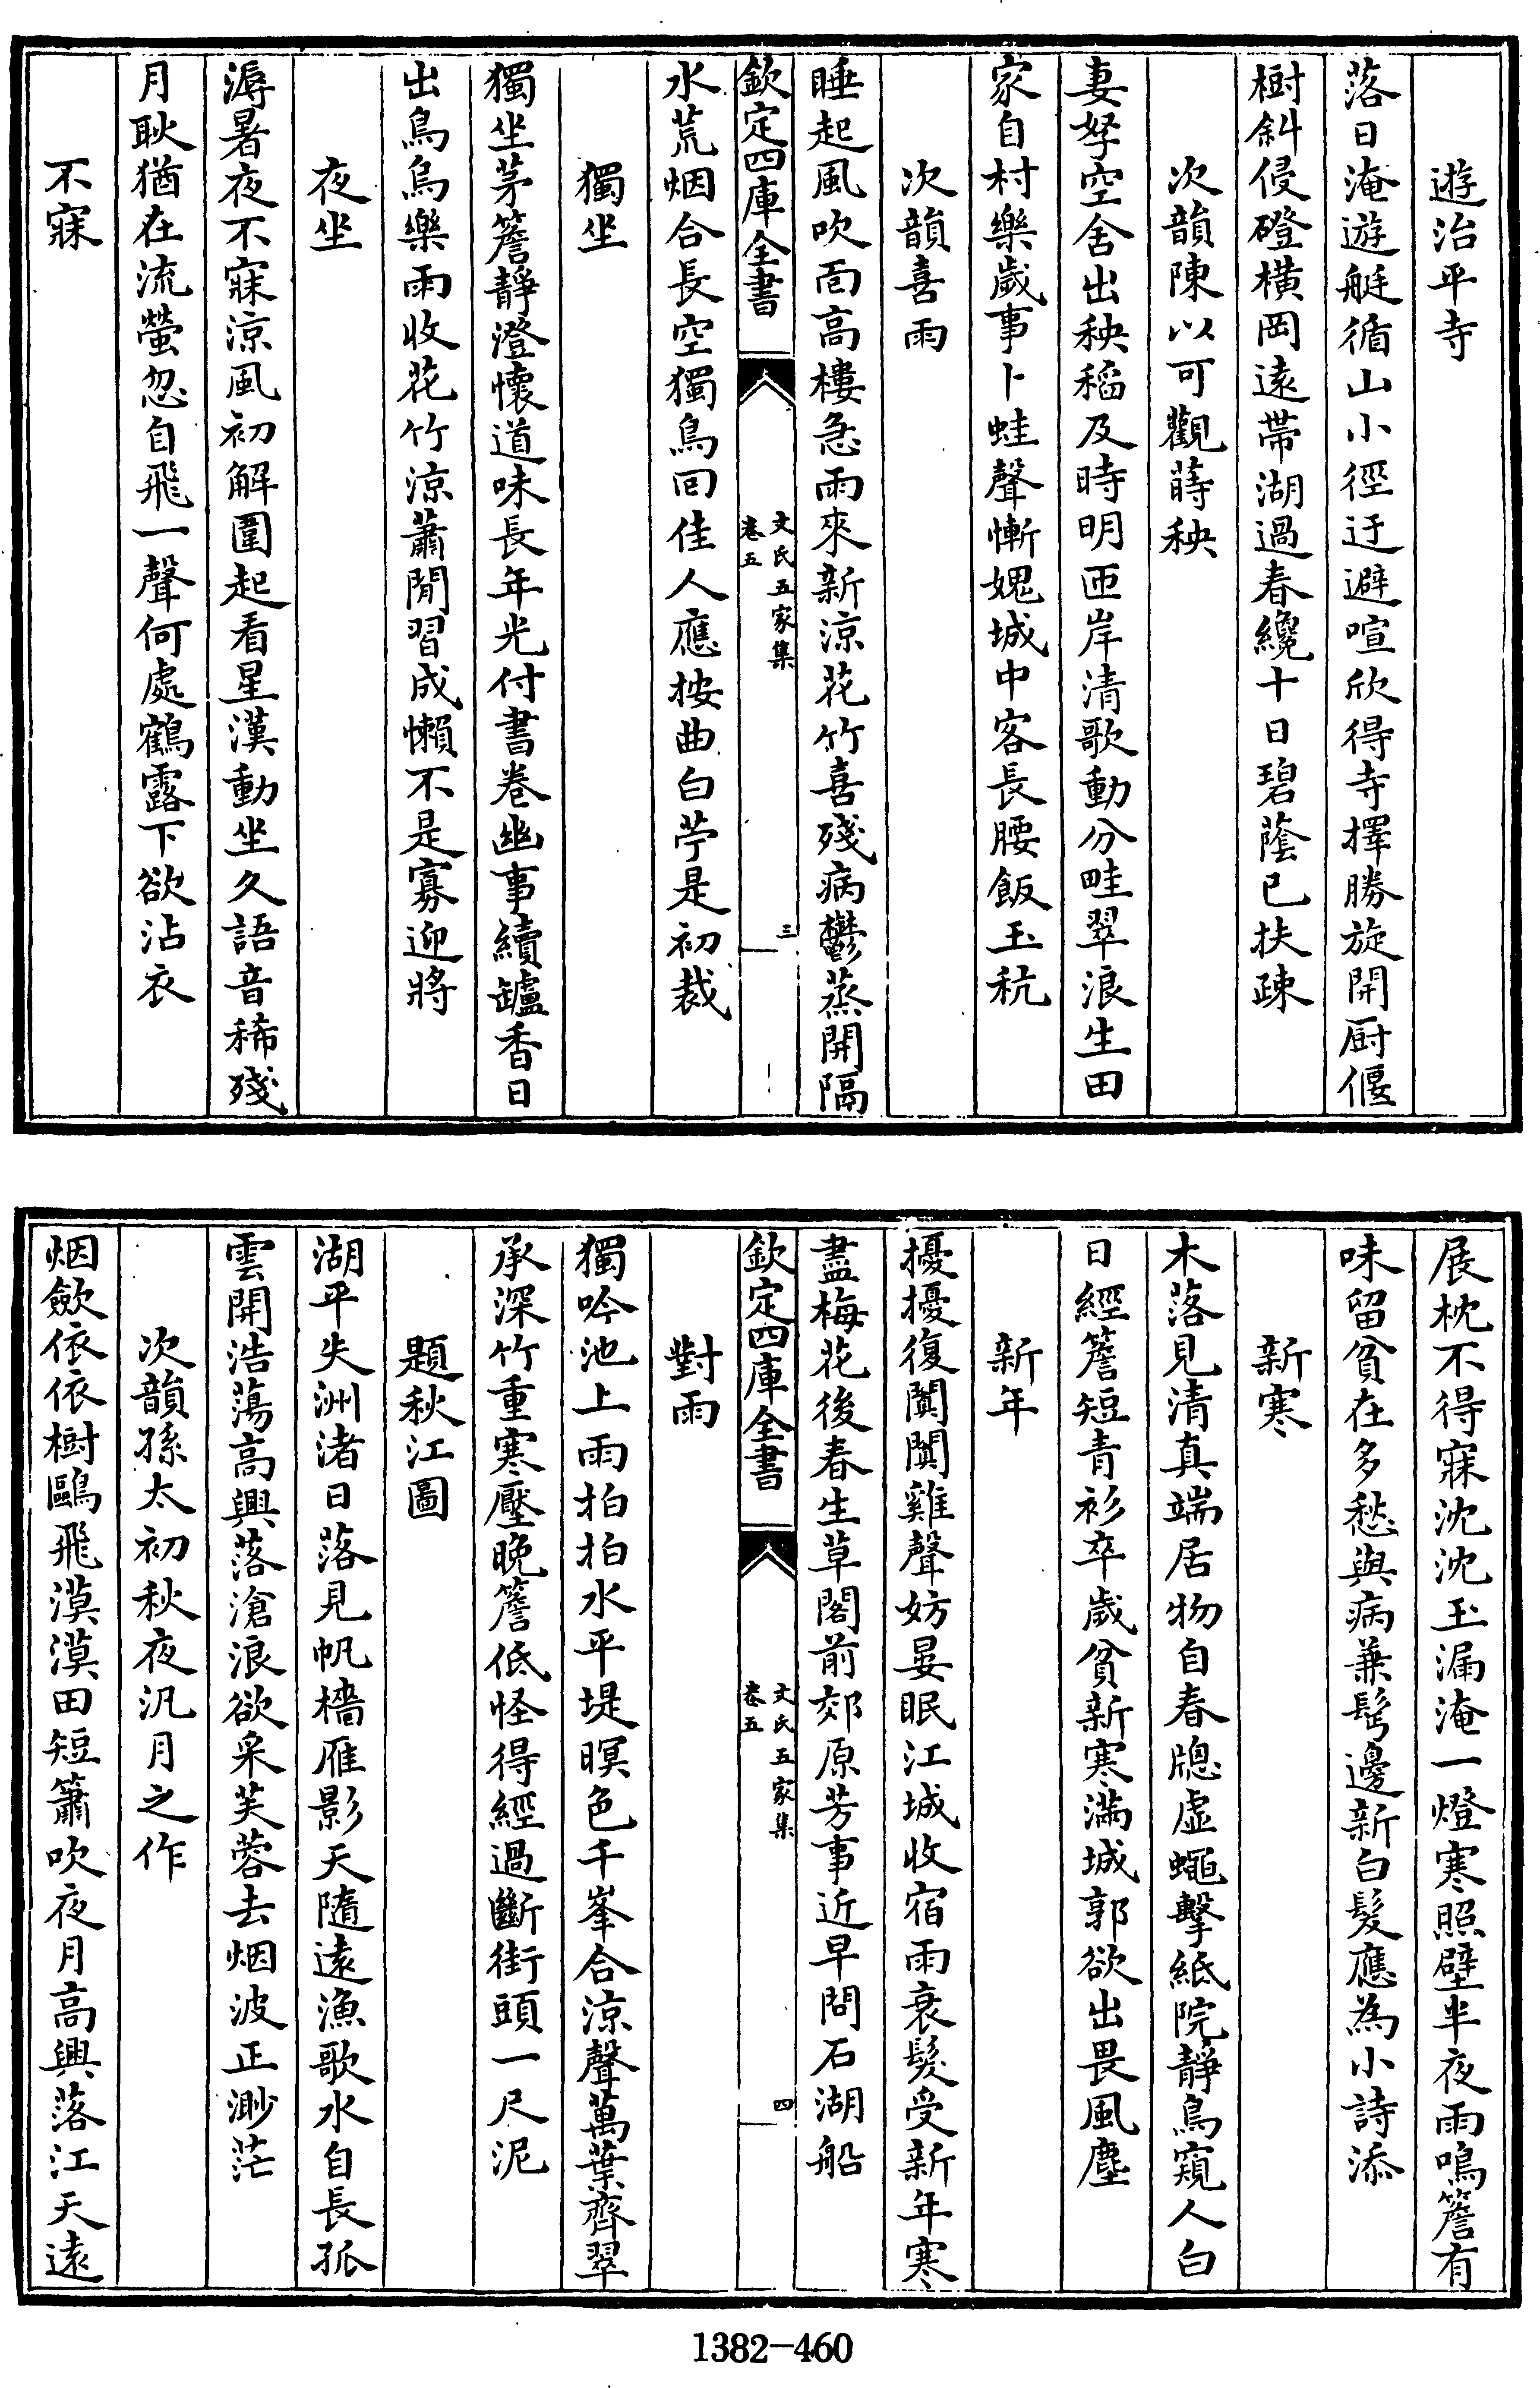 遊治平寺
落日淹遊艇循山小徑迂避喧欣得寺擇勝旋開厨偃
樹斜侵磴橫岡遠帶湖過春纔十日碧蔭已扶疎
次韻陳以可觀蒔秧
妻孥空舍出秧稻及時明匝岸清歌動分畦翠浪生田
家自村樂歲事卜蛙聲慚媿城中客長腰飯玉秔
次韻喜雨
睡起風吹面高樓急雨來新涼花竹喜殘病鬱蒸開隔
欽定四庫全書
文氏五家集
卷五
三
水荒烟合長空獨鳥回佳人應按曲白苧是初裁
獨坐
獨坐茅簷靜澄懷道味長年光付書卷幽事續罏香日
出鳥烏樂雨收花竹涼蕭閒習成懶不是寡迎將
夜坐
溽暑夜不寐涼風初解圍起看星漢動坐久語音稀殘
月耿猶在流螢忽自飛一聲何處鶴露下欲沾衣
不寐
展枕不得寐沈沈玉漏淹一燈寒照壁半夜雨鳴簷有
味留貧在多愁與病兼髩邊新白髮應為小詩添
新寒
木落見清真端居物自春牕虛蠅擊紙院靜鳥窺人白
日經簷短青衫卒歲貧新寒滿城郭欲出畏風塵
新年
擾擾復闐闐雞聲妨晏眠江城收宿雨衰髮受新年寒
盡梅花後春生草閣前郊原芳事近早問石湖船
欽定四庫全書
文氏五家集
卷五
四
對雨
獨吟池上雨拍拍水平堤暝色千峯合涼聲萬葉齊翠
承深竹重寒壓晚簷低怪得經過斷街頭一尺泥
題秋江圖
湖平失洲渚日落見帆檣雁影天隨遠漁歌水自長孤
雲開浩蕩高興落滄浪欲采芙蓉去烟波正渺茫
次韻孫太初秋夜汎月之作
烟斂依依樹鷗飛漠漠田短簫吹夜月高興落江天遠
1382-460